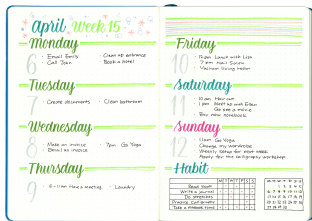 April Week 15
Monday
6
· Email Emily
· Call Joan
· Clean up entrance
· Book a hotel
Tuesday
7
· Create documents
· Clean bathroom
Wednesday
8
· Make an invoice
· Email an invoice
· 7pm Go Yoga
Thursday
9
· 8-11am Have a meeting
· Laundry
Friday
10
· 12pm Lunch with Lisa
· 7pm Nail Salon
Saturday
11
· 10am Hair cut
· 1pm Meet up with Ellen
Go see a movie
· Buy new notebook
Sunday
12
· 11am Go Yoga
· Change my wardrobe
· Weekly Setup for next week
· Apply for the calligraphy workshop
Habit
M T W T F S S
Read book
Write a diary
Do pregnancy
Practice calligraphy
Take a note